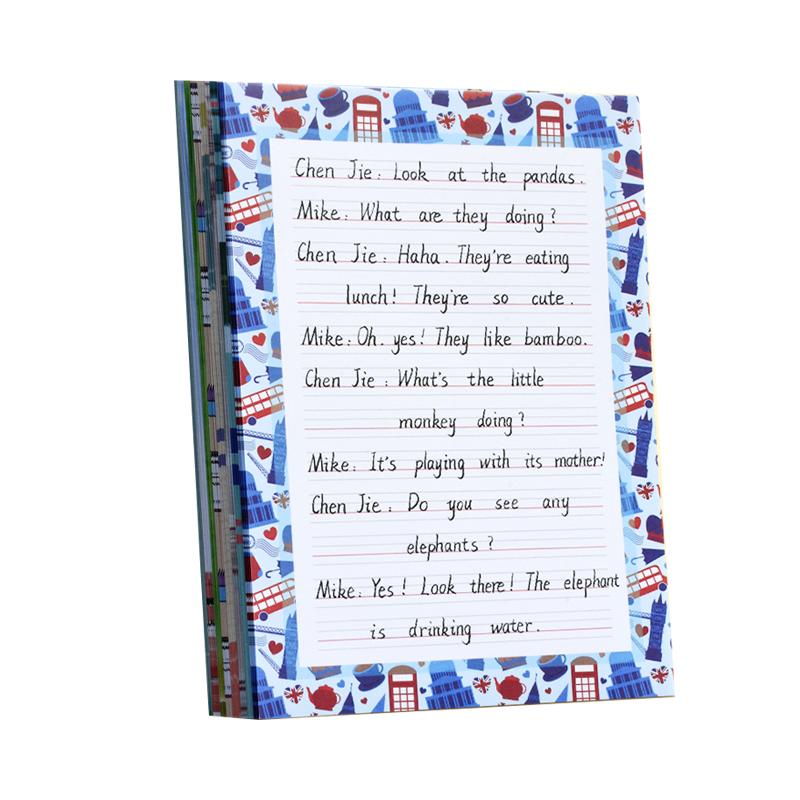 Chen Jie: Look at the pandas.
Mike: What are they doing?
Chen Jie: Haha. They're eating
lunch! They're so cute.
Mike: Oh. yes! They like bamboo.
Chen Jie: What's the little
monkey doing?
Mike: It's playing with its mother!
Chen Jie: Do you see any
elephants?
Mike: Yes! Look there! The elephant
is drinking water.